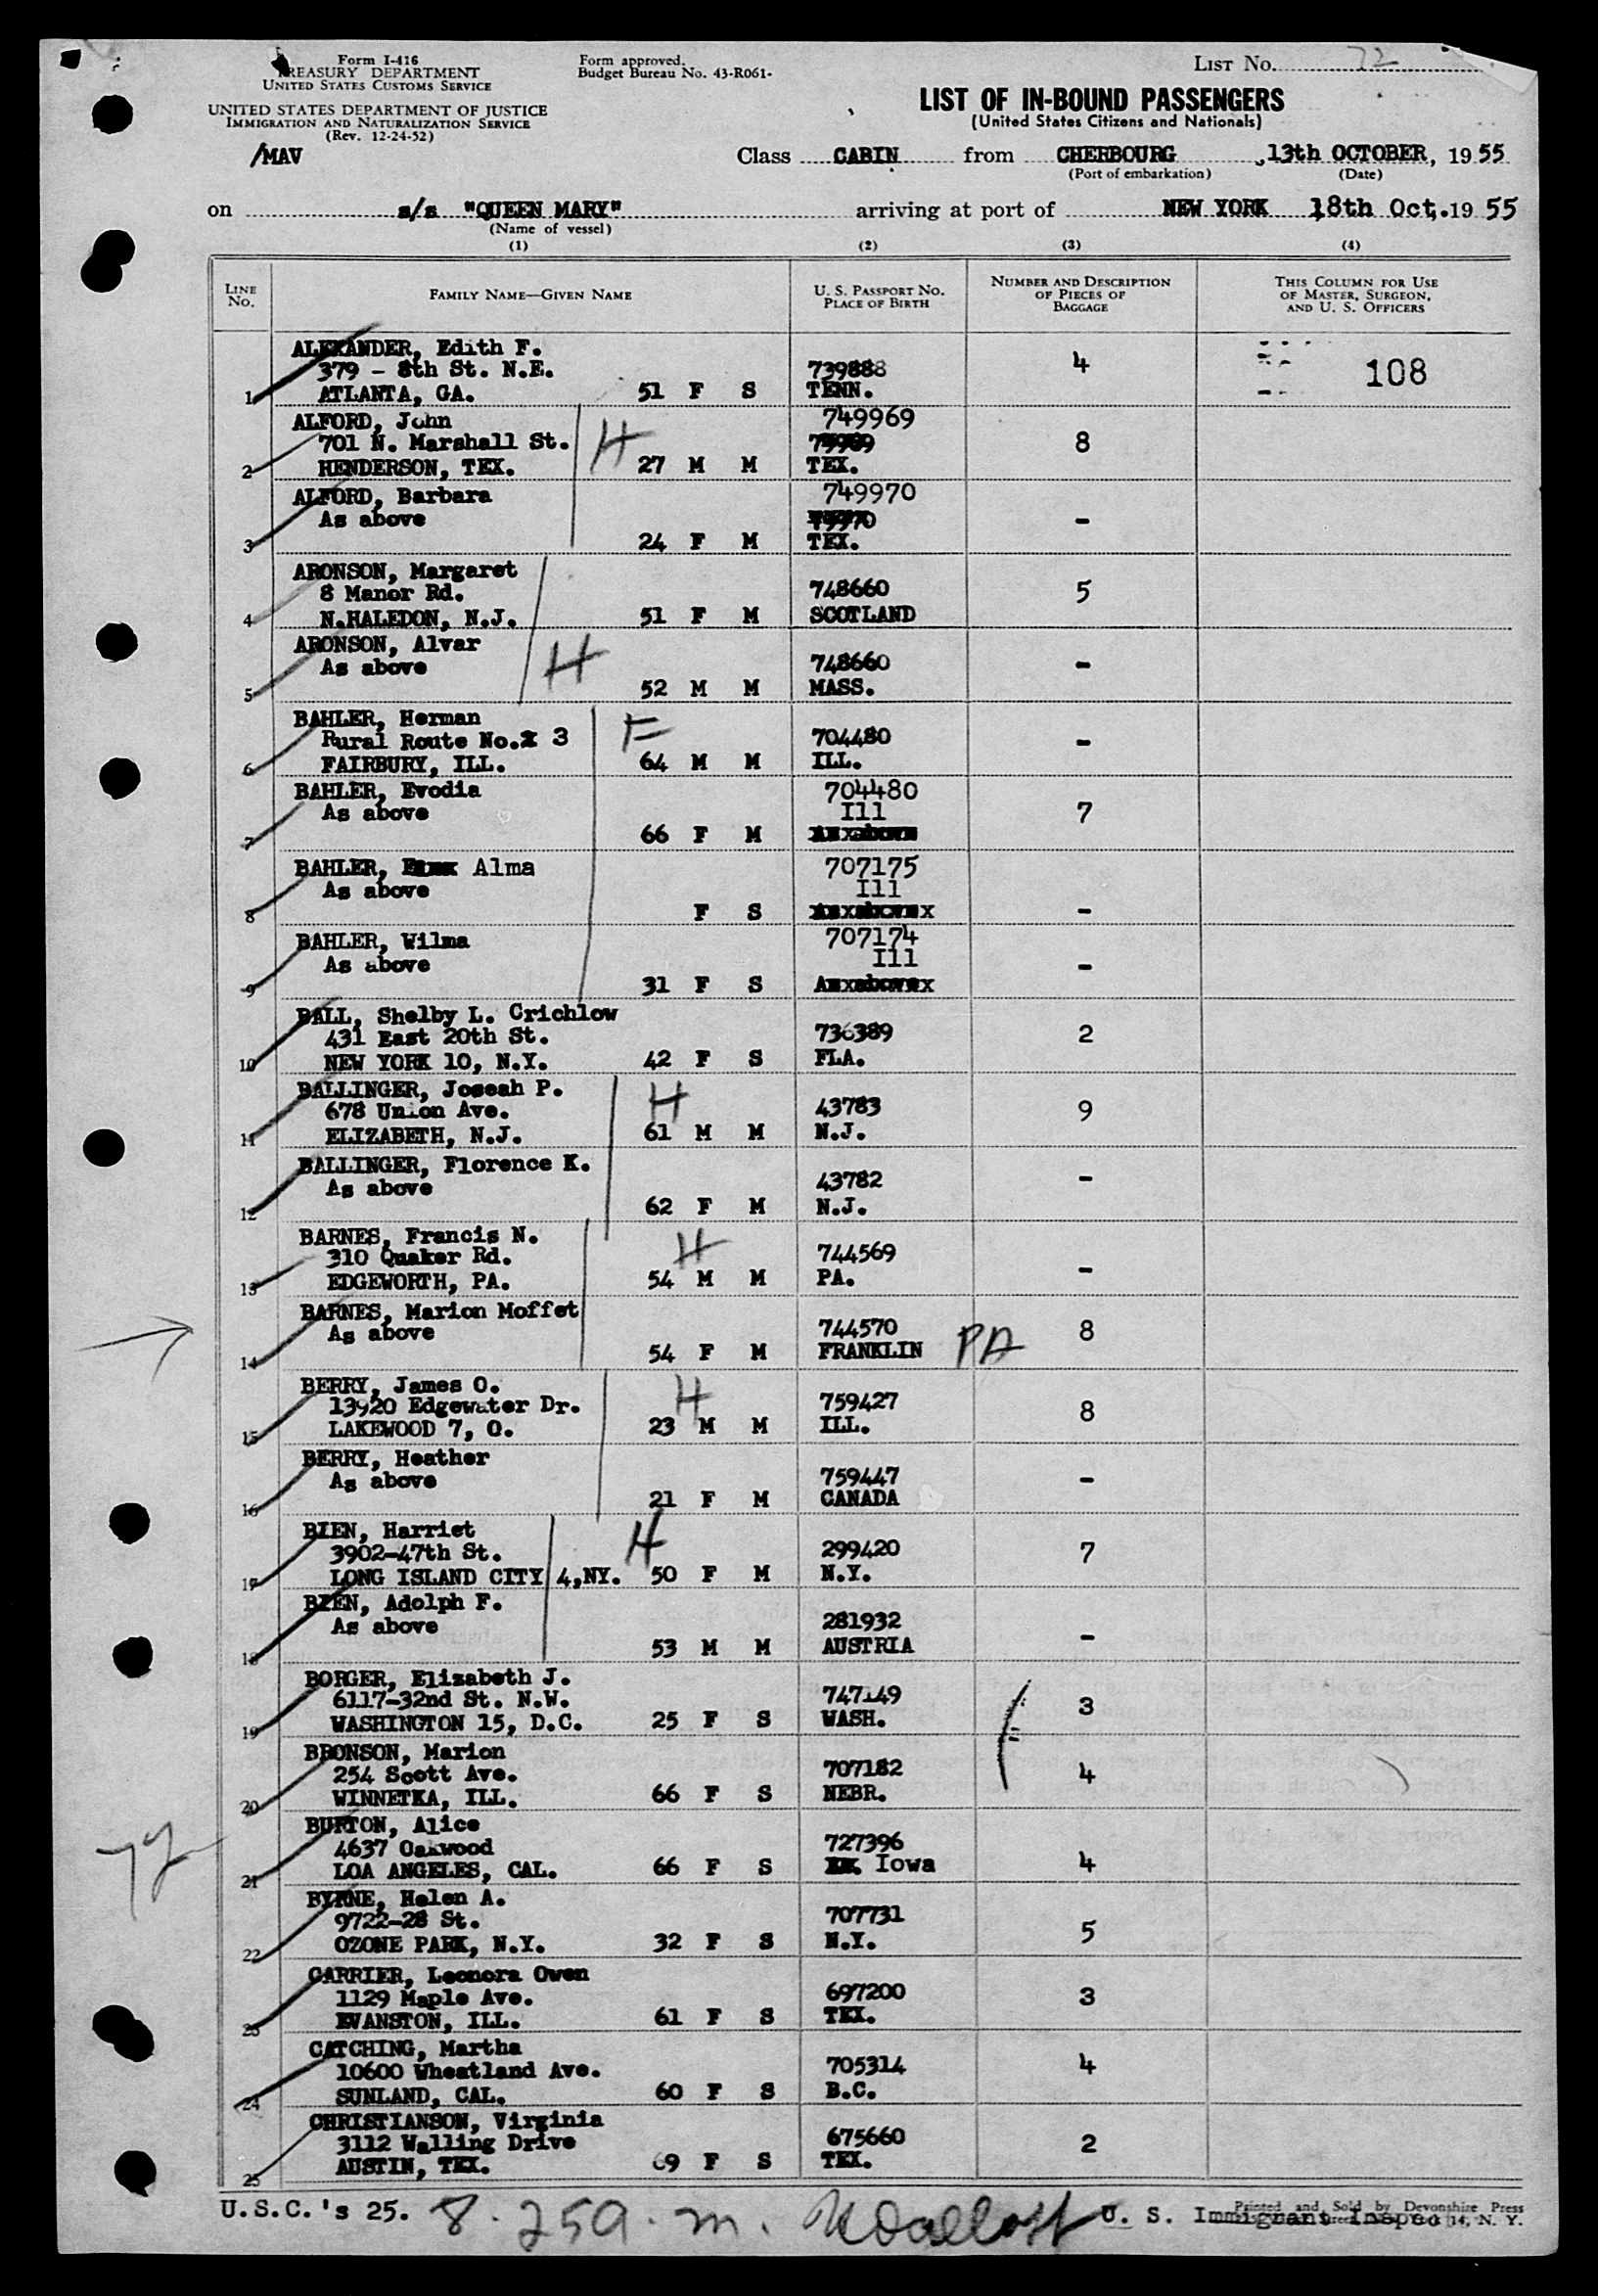 Form I-416
TREASURY DEPARTMENT
UNITED STATES CUSTOMS SERVICE
UNITED STATES DEPARTMENT OF JUSTICE
IMMIGRATION AND NATURALIZATION SERVICE
(Rev. 12-24-52)
/MAV
Form approved.
Budget Bureau No. 43-R061-
LIST NO. 72
LIST OF IN-BOUND PASSENGERS
(United States Citizens and Nationals)
Class CABIN from CHERBOURG, 13th OCTOBER, 19 55
(Port of embarkation) (Date)
on s/s "QUEEN MARY" arriving at port of NEW YORK 18th Oct. 19 55
(Name of vessel)
(1) (2) (3) (4)
LINE NO. FAMILY NAME—GIVEN NAME U. S. PASSPORT NO. PLACE OF BIRTH NUMBER AND DESCRIPTION OF PIECES OF BAGGAGE THIS COLUMN FOR USE OF MASTER, SURGEON, AND U. S. OFFICERS
ALEXANDER, Edith F.
379 - 8th St. N.E. 739888 4 108
1 ATLANTA, GA. 51 F S TENN.
ALFORD, John 749969
701 N. Marshall St. H 79969 8
2 HENDERSON, TEX. 27 M M TEX.
ALFORD, Barbara 749970
As above 79970 -
3 24 F M TEX.
ARONSON, Margaret
8 Manor Rd. 748660 5
4 N.HALEDON, N.J. 51 F M SCOTLAND
ARONSON, Alvar
As above H 748660 -
5 52 M M MASS.
BAHLER, Herman F
Rural Route No. 3 704480 -
6 FAIRBURY, ILL. 64 M M ILL.
BAHLER, Evodia 704480
As above Ill 7
7 66 F M
BAHLER, Alma 707175
As above Ill
8 F S -
BAHLER, Wilma 707174
As above Ill -
9 31 F S
BALL, Shelby L. Crichlow
431 East 20th St. 736389 2
10 NEW YORK 10, N.Y. 42 F S FLA.
BALLINGER, Joseah P. H
678 Union Ave. 43783 9
11 ELIZABETH, N.J. 61 M M N.J.
BALLINGER, Florence K.
As above 43782 -
12 62 F M N.J.
BARNES, Francis N. H
310 Quaker Rd. 744569
13 EDGEWORTH, PA. 54 M M PA. -
BARNES, Marion Moffet
As above 744570 8
14 54 F M FRANKLIN PA
BERRY, James O. H
13920 Edgewater Dr. 759427 8
15 LAKEWOOD 7, O. 23 M M ILL.
BERRY, Heather
As above 759447 -
16 21 F M CANADA
BIEN, Harriet H
3902-47th St. 299420 7
17 LONG ISLAND CITY 4,NY. 50 F M N.Y.
BIEN, Adolph F.
As above 281932 -
18 53 M M AUSTRIA
BORGER, Elizabeth J.
6117-32nd St. N.W. 747149 3
19 WASHINGTON 15, D.C. 25 F S WASH.
BRONSON, Marion
254 Scott Ave. 707182 4
20 WINNETKA, ILL. 66 F S NEBR.
BURTON, Alice
4637 Oakwood 727396
21 LOA ANGELES, CAL. 66 F S Iowa 4
BYRNE, Helen A.
9722-28 St. 707731 5
22 OZONE PARK, N.Y. 32 F S N.Y.
CARRIER, Leonora Owen
1129 Maple Ave. 697200 3
23 EVANSTON, ILL. 61 F S TEX.
CATCHING, Martha
10600 Wheatland Ave. 705314 4
24 SUNLAND, CAL. 60 F S B.C.
CHRISTIANSON, Virginia
3112 Walling Drive 675660 2
25 AUSTIN, TEX. 69 F S TEX.
U.S.C.'s 25. U. S. Immigrant Inspec
Printed and Sold by Devonshire Press
14, N. Y.